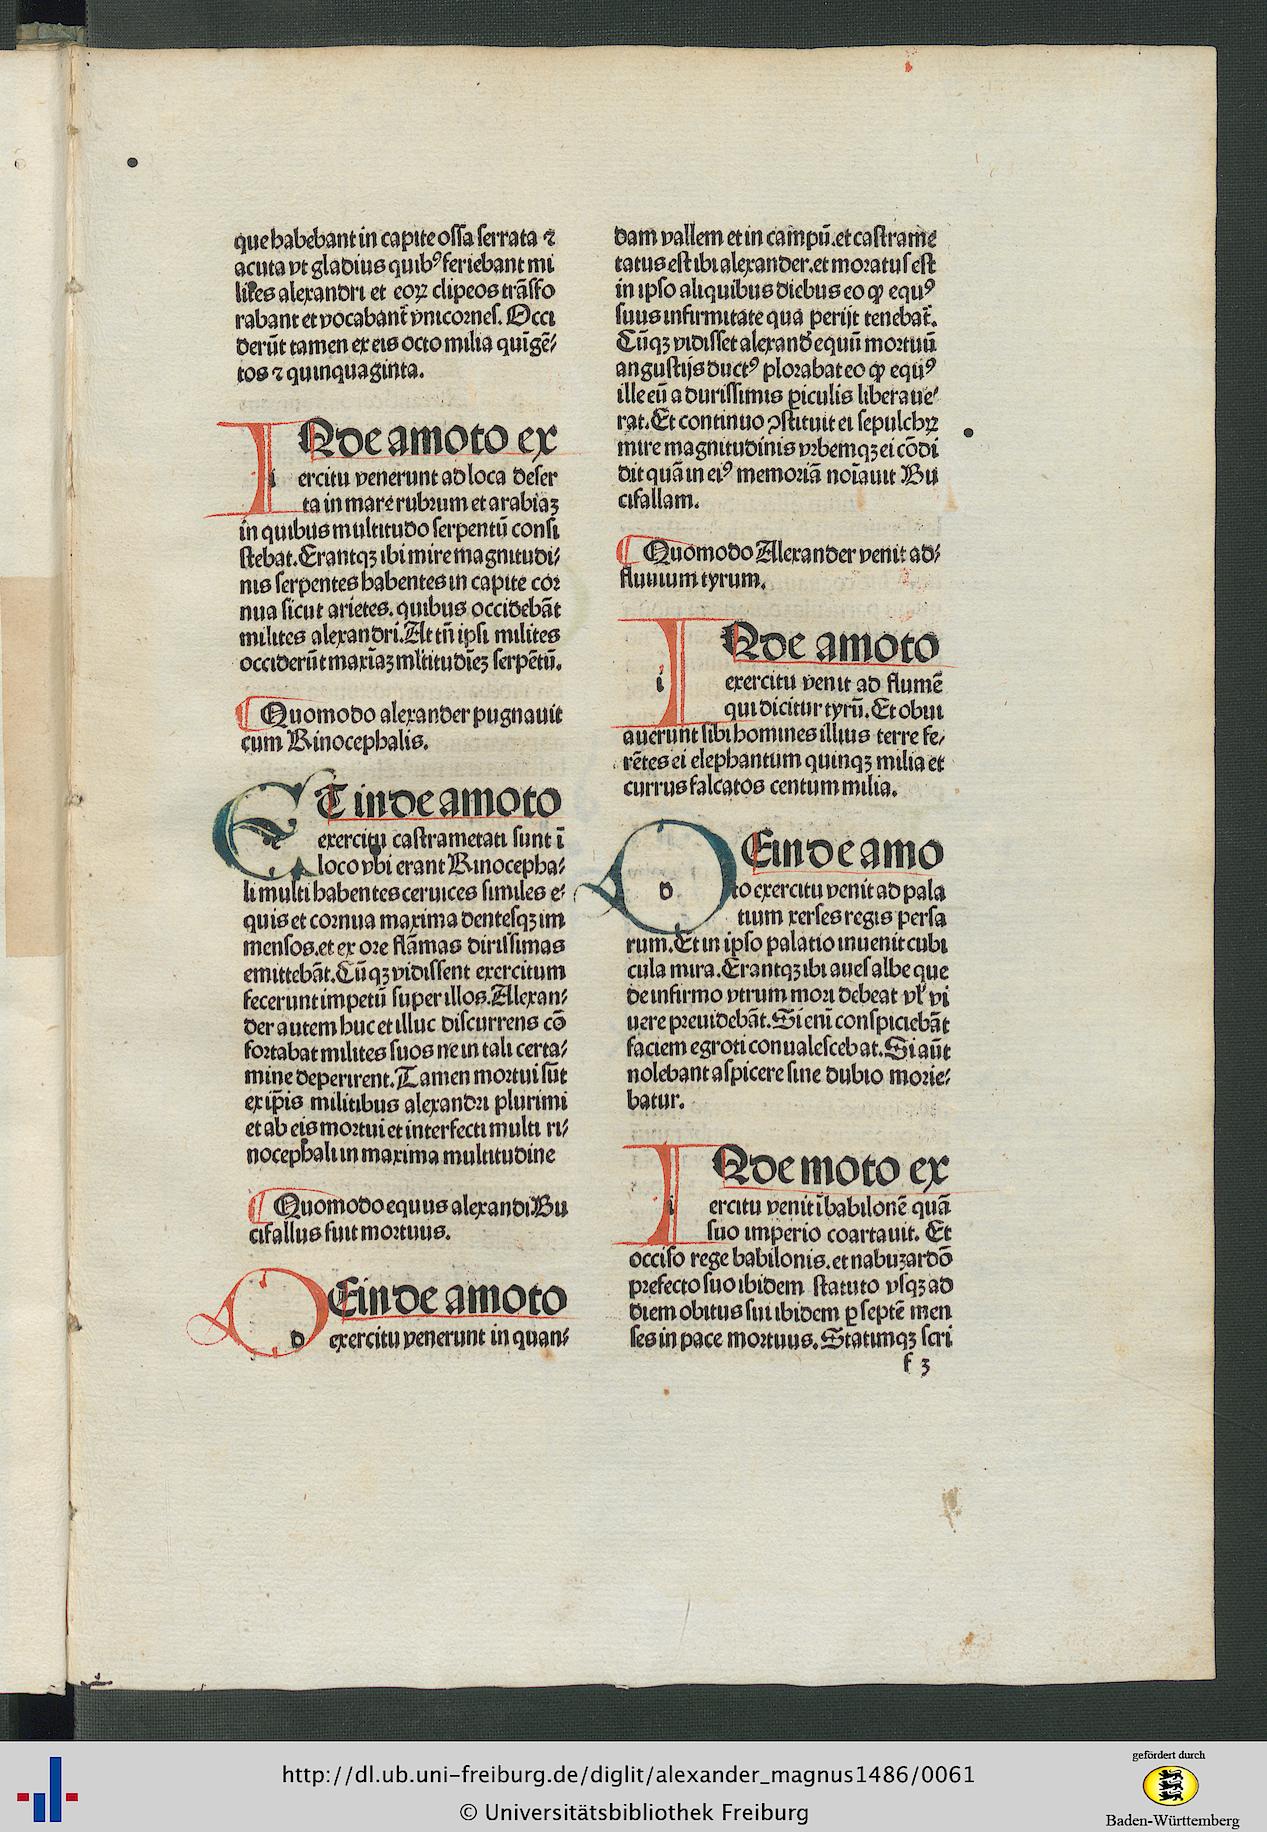 que habebant in capite ossa serrata ⁊
acuta vt gladius quibꝰ feriebant mi
lites alexandri et eoꝝ clipeos trāsfo
rabant et vocabant̄ vnicornes. Occi
derūt tamen ex eis octo milia quīgē⸗
tos ⁊ quinquaginta.
INde amoto ex
i ercitu venerunt ad loca deser
ta in mare rubrum et arabiaꝫ
in quibus multitudo serpentū consi
stebat. Erantqꝫ ibi mire magnitudi⸗
nis serpentes habentes in capite cor
nua sicut arietes. quibus occidebāt
milites alexandri. At tñ ipsi milites
occiderūt maxīaꝫ mltitudīeꝫ serpētū.
¶ Quomodo alexander pugnauit
cum Rinocephalis.
ET inde amoto
e exercitu castrametati sunt ī
loco vbi erant Rinocepha⸗
li multi habentes ceruices similes e⸗
quis et cornua maxima dentesqꝫ im
mensos. et ex ore flāmas dirissimas
emittebāt. Cūqꝫ vidissent exercitum
fecerunt impetū super illos. Alexan⸗
der autem huc et illuc discurrens cō
fortabat milites suos ne in tali certa⸗
mine deperirent. Tamen mortui sūt
ex ip̄is militibus alexandri plurimi
et ab eis mortui et interfecti multi ri⸗
nocephali in maxima multitudine
¶ Quomodo equus alexandi Bu
cifallus fuit mortuus.
DEinde amoto
d exercitu venerunt in quan⸗
dam vallem et in campū. et castrame
tatus est ibi alexander. et moratus est
in ipso aliquibus diebus eo ꝙ equꝰ
suus infirmitate qua perijt tenebat̄.
Cūqꝫ vidisset alexand̓ equū mortuū
angustijs ductꝰ plorabat eo ꝙ equꝰ
ille eū a durissimis ꝑiculis liberaue⸗
rat. Et continuo ꝯstituit ei sepulchꝝ
mire magnitudinis vrbemqꝫ ei cōdi
dit quā in eiꝰ memoriā noīauit Bu
cifallam.
¶ Quomodo Alexander venit ad⸗
fluuium tyrum.
INde amoto
i exercitu venit ad flumē
qui dicitur tyrū. Et obui
auerunt sibi homines illius terre fe⸗
rētes ei elephantum quinqꝫ milia et
currus falcatos centum milia.
DEinde amo
d to exercitu venit ad pala
tium xerses regis persa
rum. Et in ipso palatio inuenit cubi
cula mira. Erantqꝫ ibi aues albe que
de infirmo vtrum mori debeat vl̓ vi
uere preuidebāt. Si enī conspiciebāt
faciem egroti conualescebat. Si aūt
nolebant aspicere sine dubio morie⸗
batur.
INde moto ex
i ercitu venit ī babilonē quā
suo imperio coartauit. Et
occiso rege babilonis. et nabuzardō
prefecto suo ibidem statuto vsqꝫ ad
diem obitus sui ibidem ꝑ septē men
ses in pace mortuus. Statimqꝫ scri
f 3
http://dl.ub.uni-freiburg.de/diglit/alexander_magnus1486/0061
© Universitätsbibliothek Freiburg
gefördert durch
Baden-Württemberg